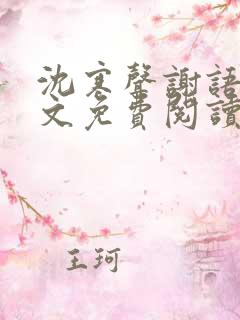 沈寒聲謝語
文免費閱讀
王珂